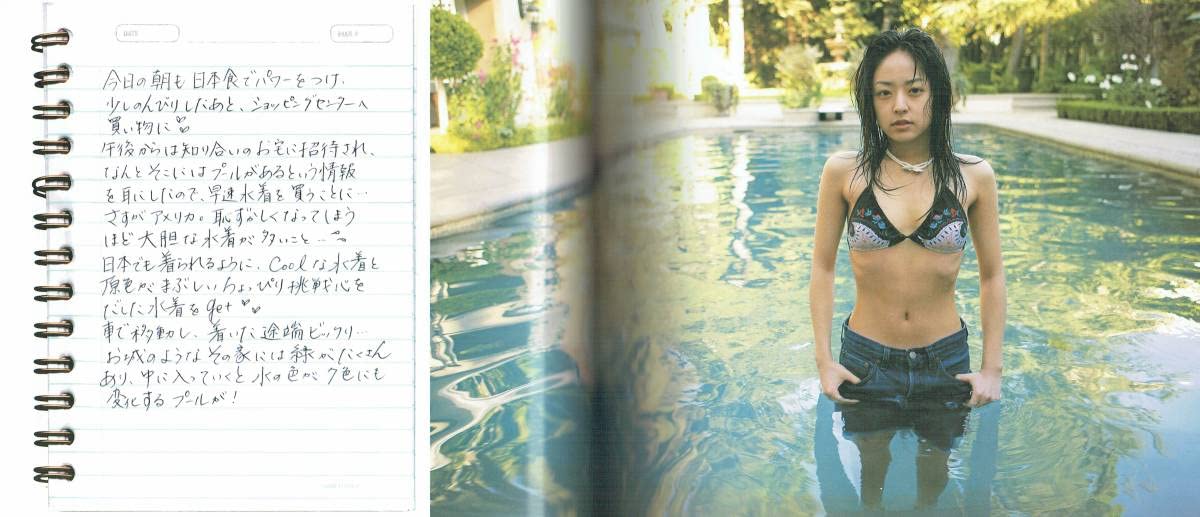 DATE
PAGE #
今日の朝も日本食でパワーをつけ、
少しのんびりしたあと、ショッピングセンターへ
買い物に♡♡
午後からは知り合いのお宅に招待され、
なんとそこにはプールがあるという情報
を耳にしたので、早速水着を買うことに…
さすがアメリカ。恥ずかしくなってしまう
ほど大胆な水着が多いこと…
日本でも着られるように、coolな水着と
原色がまぶしいちょっぴり挑戦心を
だした水着をget♡♡
車で移動し、着いた途端ビックリ…
お城のようなその家には緑がたくさん
あり、中に入っていくと水の色が7色にも
変化するプールが!